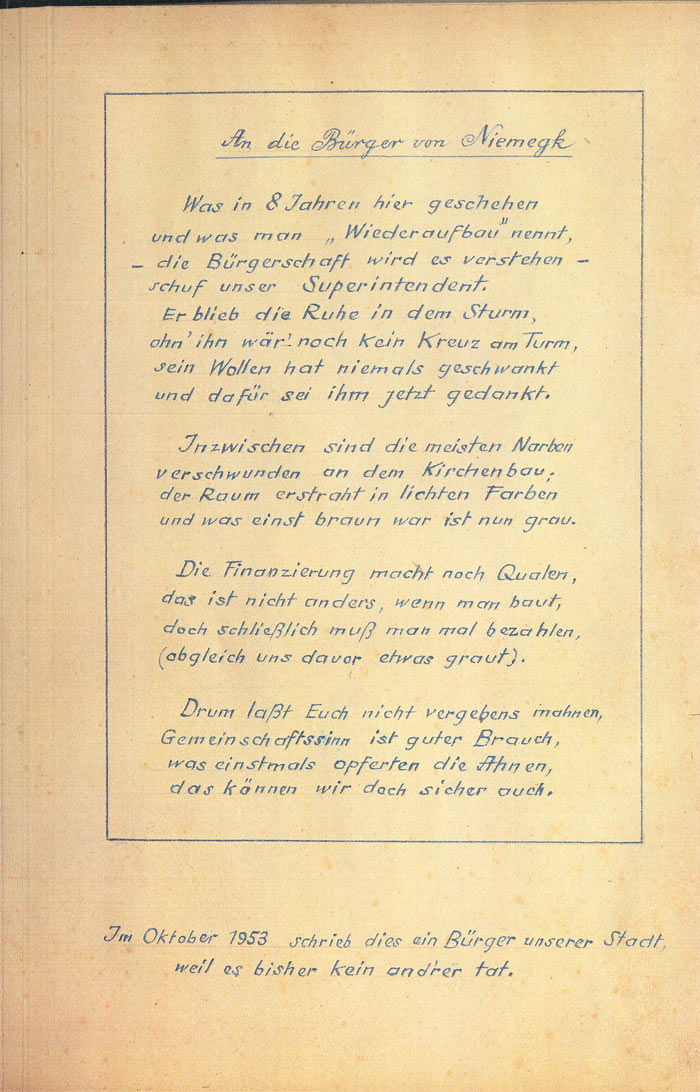 An die Bürger von Niemegk
Was in 8 Jahren hier geschehen
und was man „Wiederaufbau" nennt,
– die Bürgerschaft wird es verstehen –
schuf unser Superintendent.
Er blieb die Ruhe in dem Sturm,
ohn' ihn wär' noch kein Kreuz am Turm,
sein Wollen hat niemals geschwankt
und dafür sei ihm jetzt gedankt.
Inzwischen sind die meisten Narben
verschwunden an dem Kirchenbau;
der Raum erstraht in lichten Farben
und was einst braun war ist nun grau.
Die Finanzierung macht noch Qualen,
das ist nicht anders, wenn man baut,
doch schließlich muß man mal bezahlen,
(obgleich uns davor etwas graut).
Drum laßt Euch nicht vergebens mahnen,
Gemeinschaftssinn ist guter Brauch,
was einstmals opferten die Ahnen,
das können wir doch sicher auch.
Im Oktober 1953 schrieb dies ein Bürger unserer Stadt,
weil es bisher kein and'rer tat.